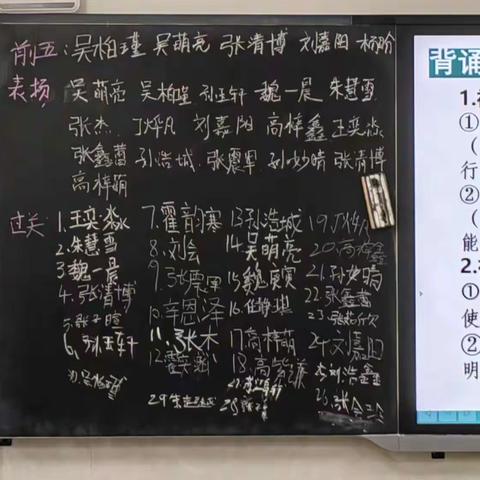 前五：吴柏瑾 吴萌亮 张清博 刘嘉阳 杨
表扬 吴萌亮 吴柏瑾 孙玉轩 魏一晨 朱慧雪
张杰 丁烨凡 刘嘉阳 高梓鑫 王奕淼
张鑫蕾 孙浩城 张震军 孙妙晴 张清博
高梓萌
过关：
1.王奕淼
2.朱慧雪
3.魏一晨
4.张清博
5.张子暄
6.孙玉轩
7.霍韵寒
8.刘会
9.张震军
10.辛恩泽
11.张木
12.
13.孙浩城
14.吴萌亮
15.魏
16.任静琪
17.高梓萌
18.高
19.丁烨凡
20.高梓鑫
21.孙妙晴
22.张鑫蕾
23.张
24.刘嘉阳
刘浩鑫
26.张会
27.
28.
29.朱
30.
背诵
1.
①
（
行
②
（
能
2.
①
使
②
明